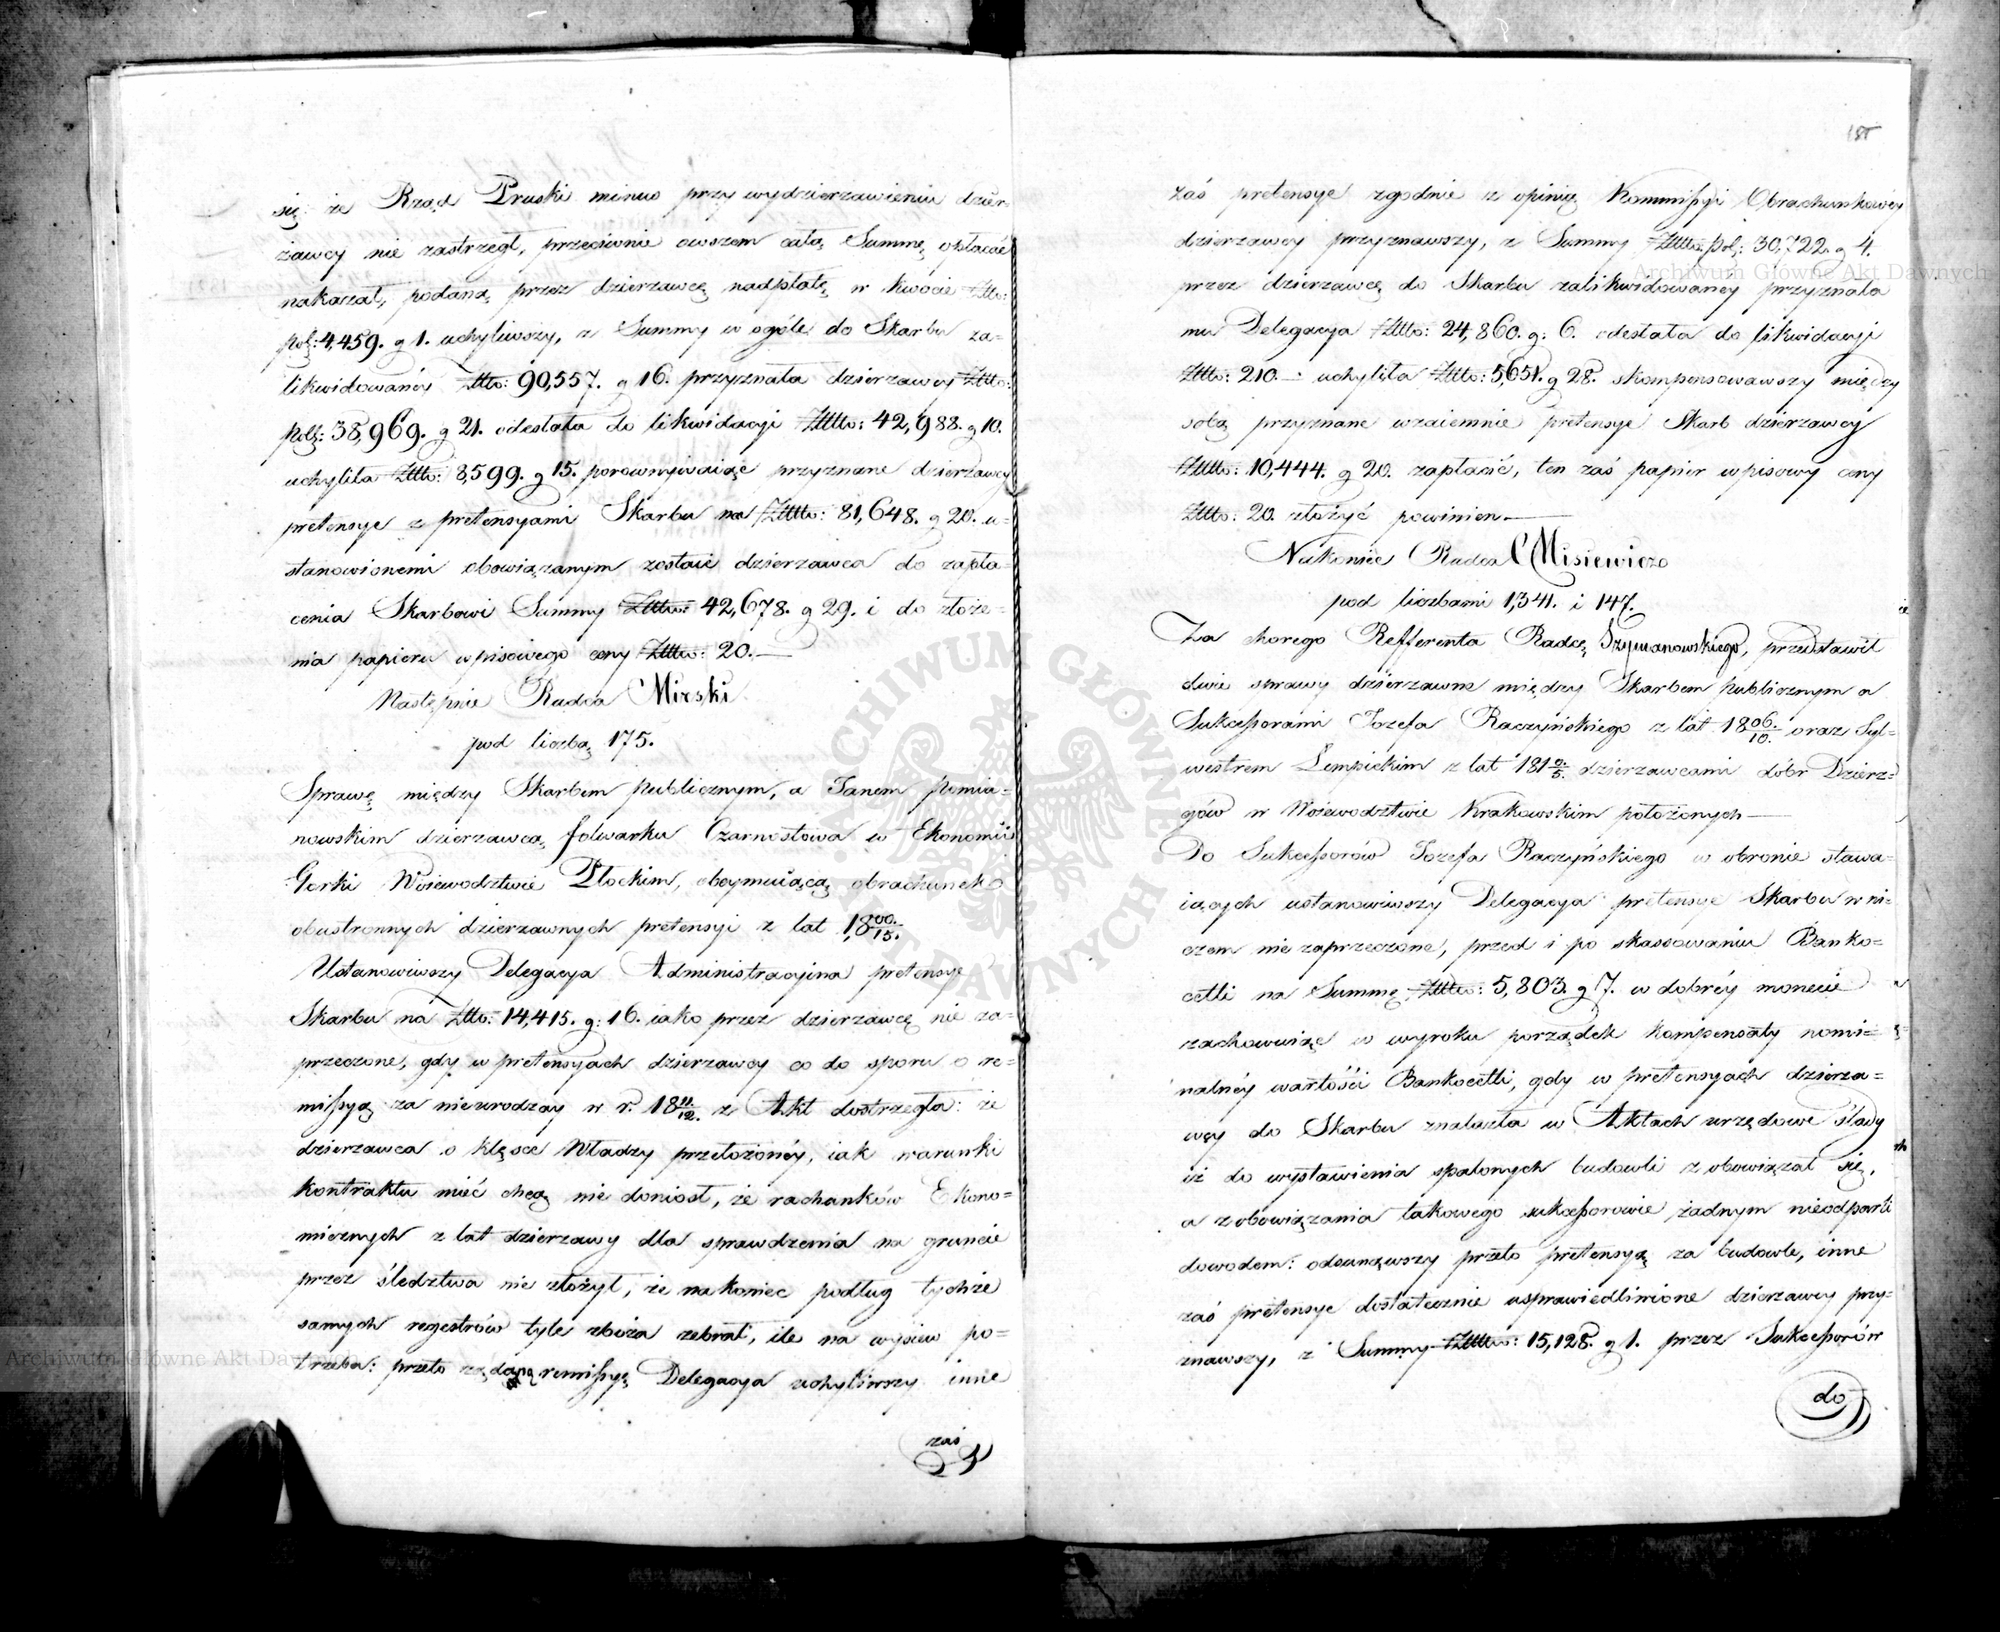 się że Rząd Pruski minus przy wydzierzawieniu dzier-
żawcy nie zastrzegł, przeciwnie owszem całą Summę opłacać
nakazał, podaną przez dzierzawcę nadpłatę w kwocie Złto:
pol: 4,459. g 1. uchyliwszy, z Summy w ogóle do Skarbu za-
likwidowanéy Złto: 90,557. g 16. przyznała dzierzawcy Złto:
pols: 38,969. g 21. odesłała do likwidacyi Złto: 42,988. g 10.
uchyliła Złto: 8,599. g 15. porownywaiąc przyznane dzierzawcy
pretensye z pretensyami Skarbu na Złto: 81,648. g 20. u-
stanowionemi obowiązanym zostaie dzierzawca do zapła-
cenia Skarbowi Summy Złto: 42,678. g 29. i do złoże-
nia papieru wpisowego ceny Złto: 20.—
Następnie Radca Mirski
pod liczbą 175.
Sprawę między Skarbem publicznym, a Janem Pomia-
nowskim dzierzawcą folwarku Czarnostowa w Ekonomii
Gorki Woiewodztwie Płockim, obeymuiącą obrachunek
obustronnych dzierzawnych pretensyi z lat 1800./15.
Ustanowiwszy Delegacya Administracyina pretensye
Skarbu na Złto: 14,415. g: 16. iako przez dzierzawcę nie za-
przeczone, gdy w pretensyach dzierzawcy co do sporu o re-
missyą za nieurodzay w r. 1811/12. z Akt dostrzegła: że
dzierzawca o klęsce Władzy przełożonéy, iak warunki
kontraktu mieć chcą nie doniosł, że rachunków Ekono-
micznych z lat dzierzawy dla sprawdzenia na gruncie
przez śledztwa nie złożył, że nakoniec podług tychże
samych regestrów tyle zboża zebrał, ile na wysiew po-
trzeba: przeto żądaną remissyę Delegacya uchyliwszy inne
zaś
185
zaś pretensye zgodnie z opinią Kommissyi Obrachunkowéy
dzierzawcy przyznawszy, z Summy Złto: pol: 30,722. g 4.
przez dzierzawcę do Skarbu zalikwidowanéy przyznała
mu Delegacya Złto: 24,860. g: 6. odesłała do likwidacyi
Złto: 210.— uchyliła Złto: 5,651. g 28. skompensowawszy między
sobą przyznane wzaiemnie pretensye Skarb dzierzawcy
Złto: 10,444. g 20. zapłacić, ten zaś papier wpisowy ceny
Złto: 20. złożyć powinien.—
Nakoniec Radca Misiewicz
pod liczbami 1,341. i 147.
Za chorego Refferenta Radcę Szymanowskiego, przedstawił
dwie sprawy dzierzawne między Skarbem publicznym a
Sukcessorami Jozefa Raczyńskiego z lat 1806./10. oraz Syl-
westrem Lempickim z lat 1810/5. dzierzawcami dóbr Dzierz-
gów w Woiewodztwie Krakowskim położonych—
Do Sukcessorów Jozefa Raczyńskiego w obronie stawa-
iących ustanowiwszy Delegacya pretensye Skarbu w ni-
czem nie zaprzeczone, przed i po skassowaniu Banko-
cetli na Summę Złto: 5,803. g 7. w dobréy monecie
zachowuiąc w wyroku porządek kompensaty nomi-
nalnéy wartości Bankocetli, gdy w pretensyach dzierza-
wcy do Skarbu znalazła w Aktach urzędowe ślady
iż do wystawienia spalonych budowli zobowiązał się,
a zobowiązania takowego sukcessorowie żadnym nieodparli
dowodem: odsunąwszy przeto pretensyą za budowle, inne
zaś pretensye dostatecznie usprawiedliwione dzierzawcy przy-
znawszy, z Summy Złto: 15,128. g 1. przez Sukcessorów
do